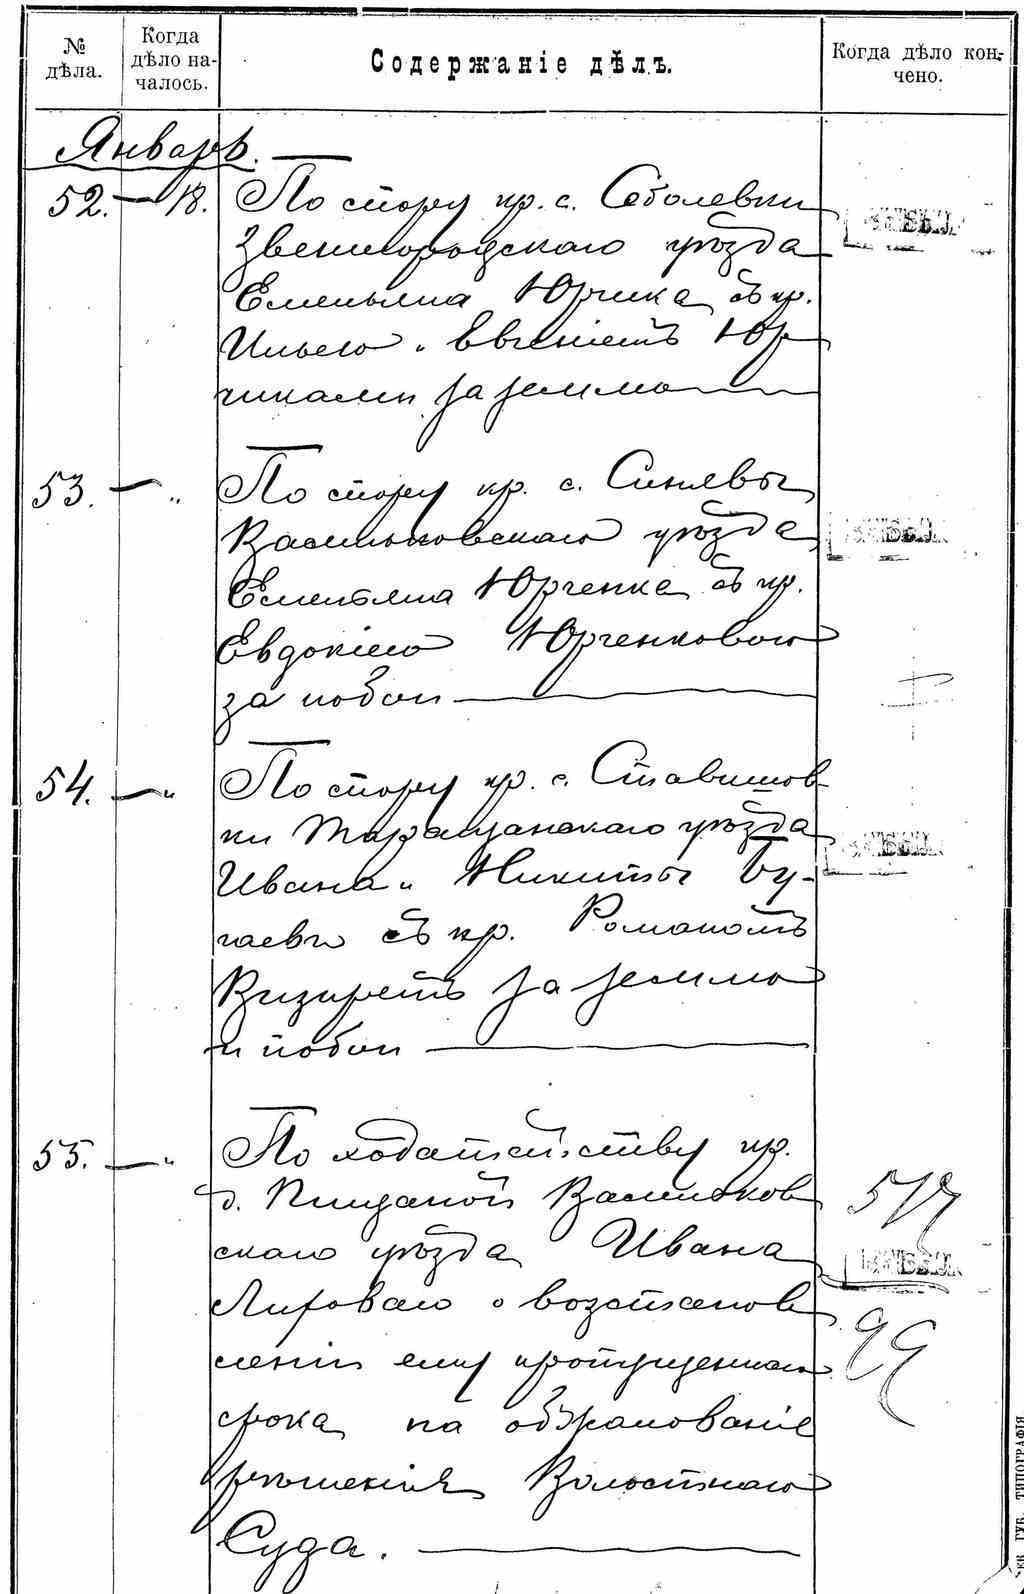 № дѣла.
Когда дѣло на-чалось.
Содержаніе дѣлъ.
Когда дѣло кон-чено.
Январь.
52. — 18. По спору кр. с. Соболевки
Звенигородскаго уѣзда
Емельяна Юрчика съ кр.
Ильею и Евгеніемъ Юр-
чиками за землю
53. — „ По спору кр. с. Синявы
Васильковскаго уѣзда
Емельяна Юрченка съ кр.
Евдокіею Юрченковою
за побои
54. — „ По спору кр. с. Ставишов-
ки Таращанскаго уѣзда
Ивана и Никиты Бу-
гаевъ съ кр. Романомъ
Визиремъ за землю
и побои
55. — „ По ходатайству кр.
д. Пищаной Васильков
скаго уѣзда Ивана
Лироваго о возстанов
леніи ему пропущеннаго
срока на обжалованіе
рѣшенія Волостнаго
Суда.
ГУБ. ТИПОГРАФІЯ